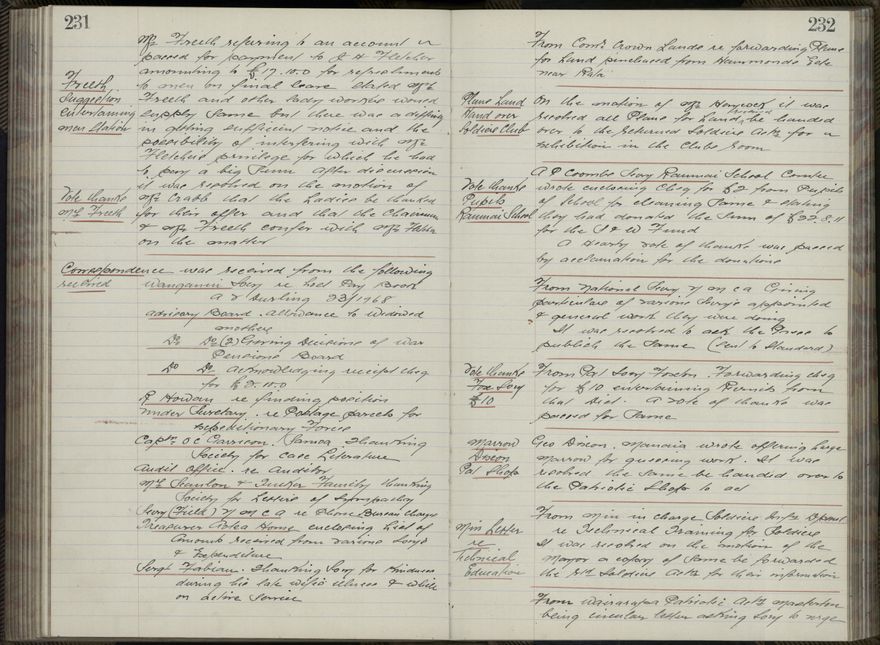 231
Mrs Freeth referring to an account
passed for payment to J H Fletcher
amounting to £17.10.0 for refreshments
Freeth
to men on final leave stated Mrs
Suggestion
Freeth and other lady workers would
entertaining
supply same but there was a difficulty
men Station
in getting sufficient notice and the
possibility of interfering with Mr
Fletchers privilege for which he had
to pay a big sum After discussion
it was resolved on the motion of
Vote thanks
Mr Crabb that the Ladies be thanked
Mrs Freeth
for their offer and that the Chairman
& Mrs Freeth confer with Mr Fletcher
on the matter
Correspondence was received from the following
received
Wanganui Socy re lost Pay Book
A V Durling 23/1968
Advisory Board. Allowance to Widowed
mothers
Do Do (2) Giving Decisions of War
Pensions Board
Do Do acknowledging receipt cheq
for
R Howan re finding position
Under Secretary. re Postage parcels for
Expeditionary Force
Captn O C Garrison. Samoa Thanking
Society for Case Literature
Audit Office. re Auditor
Mrs Scanlon & Tucker Family thanking
Society for Letters of Sympathy
Secy (Field) Y M C A re Phone Bureau Charges
Treasurer Home enclosing List of
Amounts received from various Socys
& Expenditure
Sergt Fabian. Thanking Socy for Kindness
during his late wife's illness & while
on Active Service
232
From Comr Crown Lands re forwarding Plans
for Land purchased from Hammonds Este
near Rata
Plans Land
On the motion of Mr it was
Hand over
resolved all Plans for Land received be handed
Soldiers Club
over to the Returned Soldiers Assn for
exhibition in the Clubs Room
A P Coombs Secy Raumai School Comtee
Vote thanks
wrote enclosing Cheq for £2 from Pupils
Pupils
of School for cleaning same & stating
Raumai School
they had donated the sum of £22.8.11
for the S & W Fund
A Hearty vote of thanks was passed
by acclamation for the donations
From National Secy Y M C A Giving
particulars of various Secys appointed
& general work they were doing
It was resolved to ask the Press to
publish the same (Sent to Standard)
Vote thanks
From Pat Socy Foxton. Forwarding cheq
Fox Socy
for £10 entertaining Recruits from
£10
that Dist. A vote of thanks was
passed for same
Marrow
Geo Dixon. Manaia wrote offering large
Dixon
Marrow for guessing work. It was
Pat Shop
resolved the same be handed over to
the Patriotic Shop to act
From Min in charge Soldiers Dpmt
Min Letter
re Technical Training for Soldiers
re
It was resolved on the motion of the
Technical
Mayor a copy of same be forwarded
Education
the Rtd Soldiers Assn for their information
From Wairarapa Patriotic Assn Masterton
being circular letter asking Socy to urge